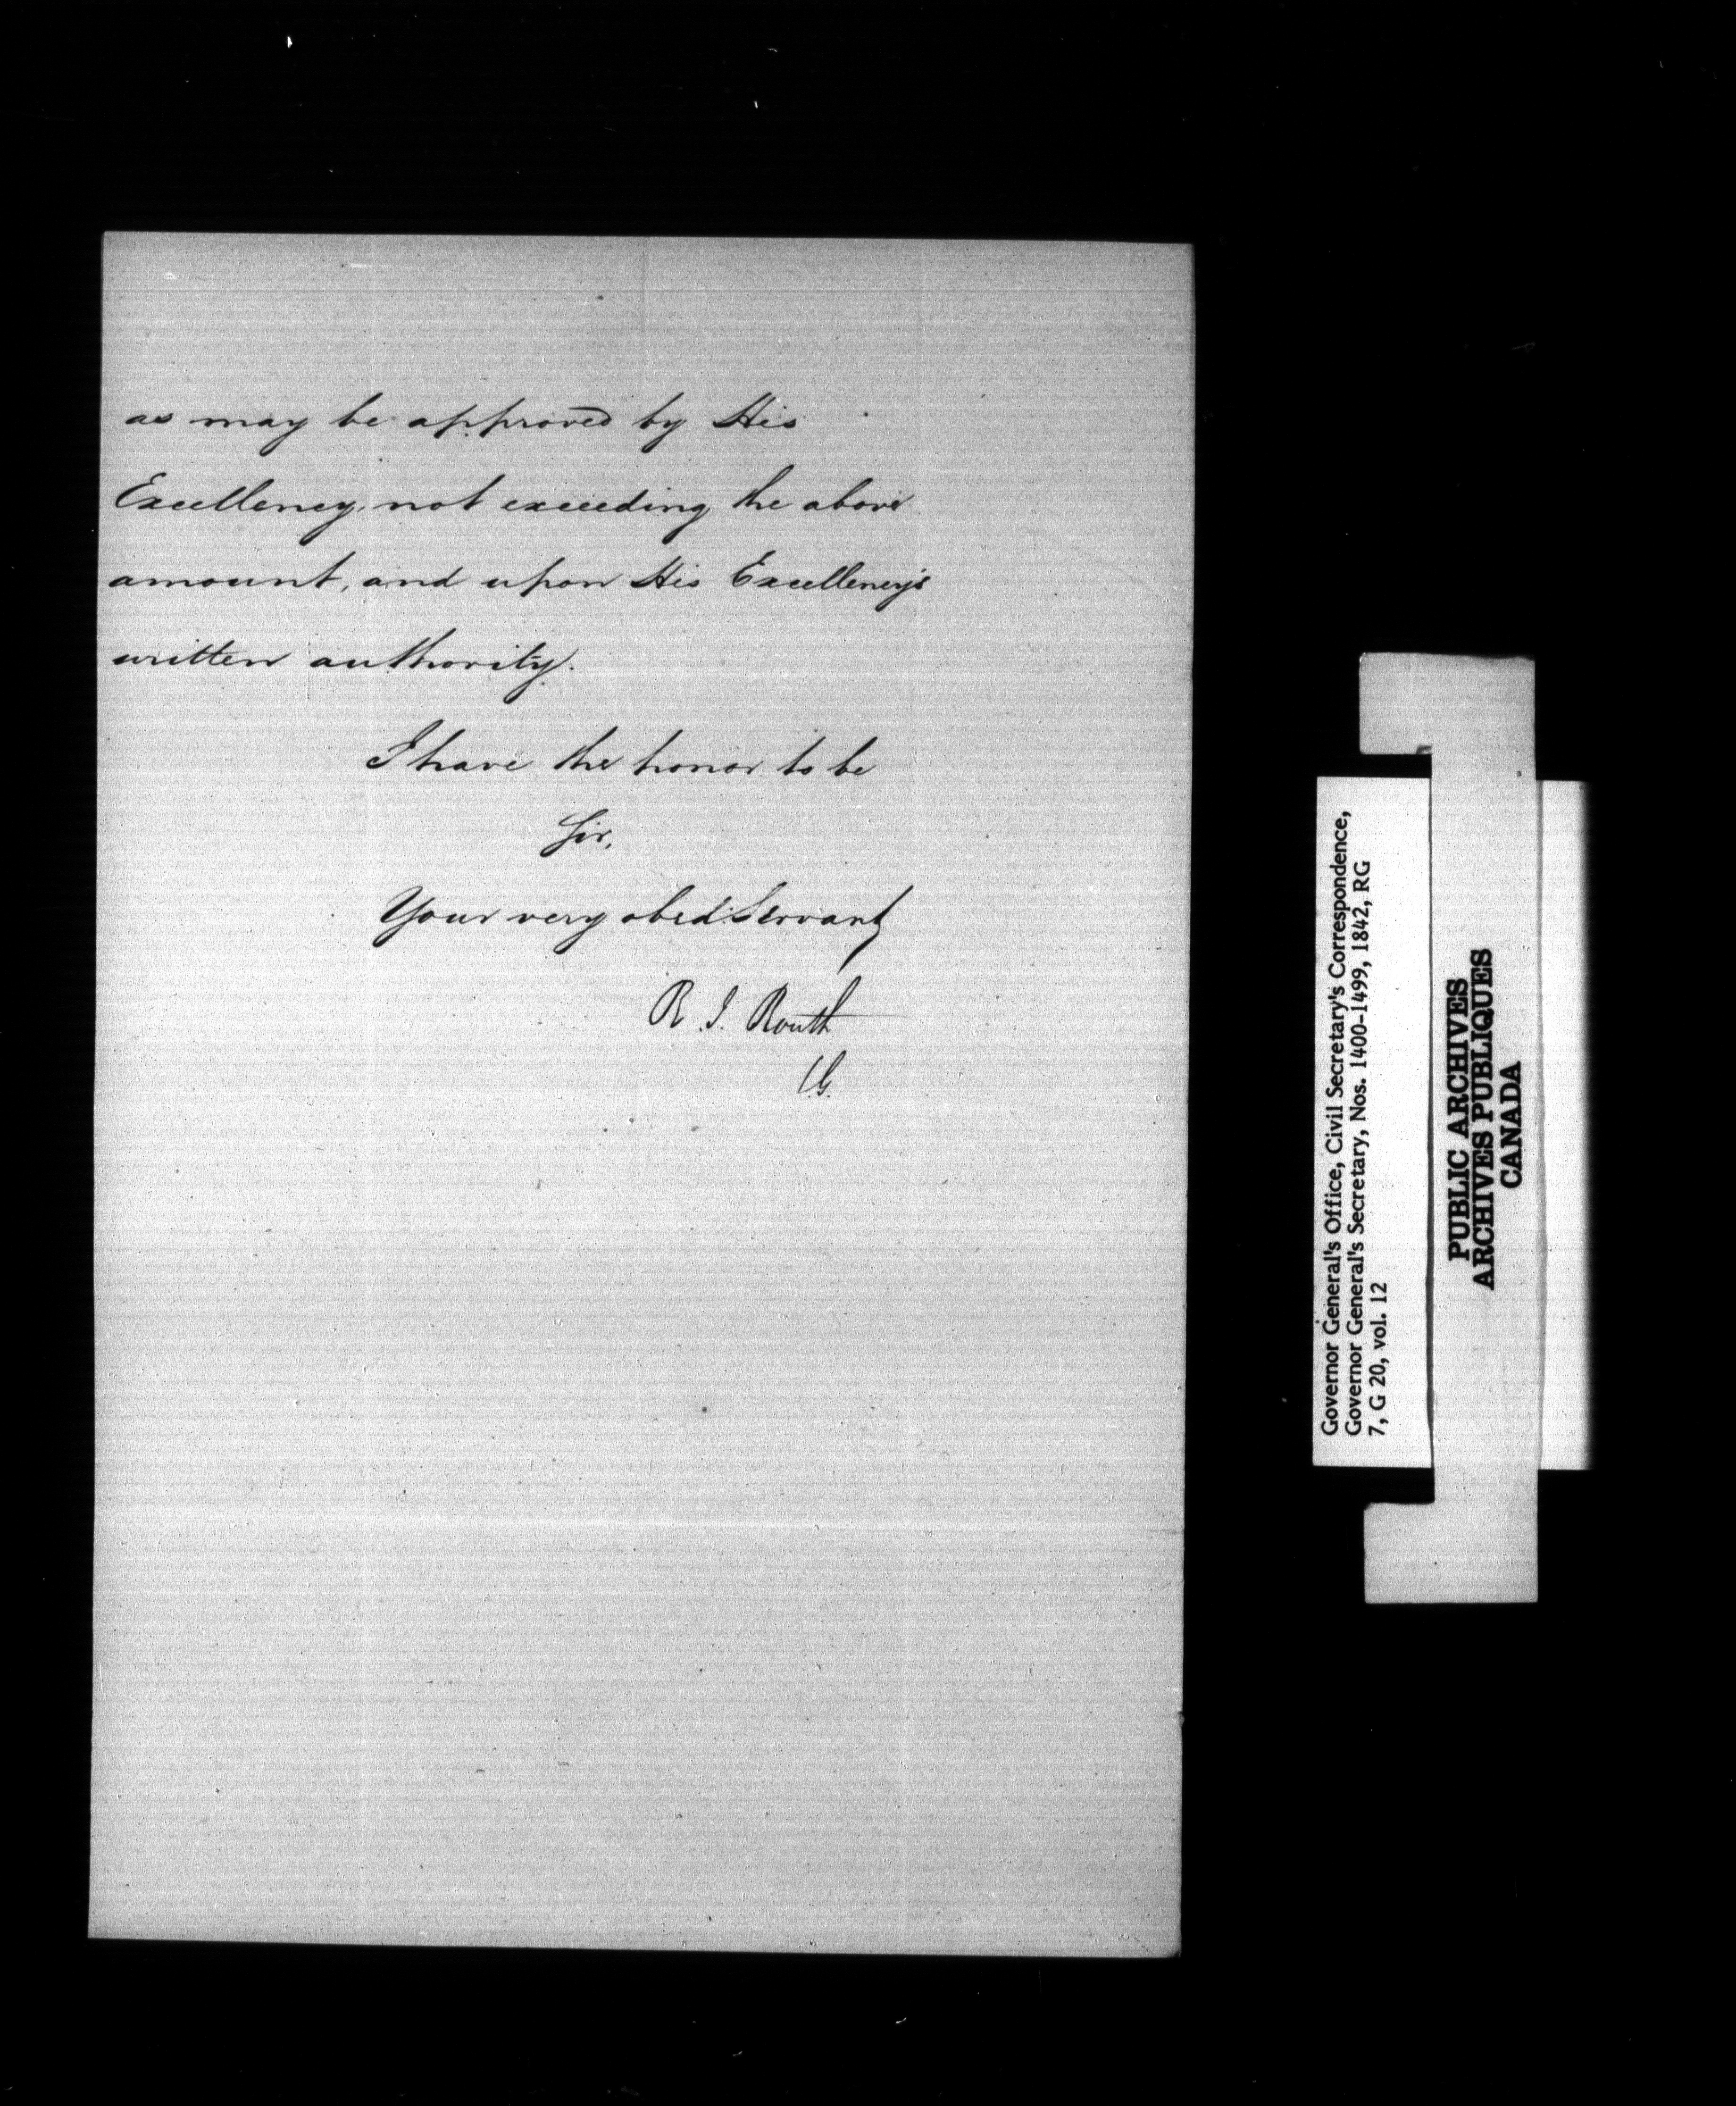 as may be approved by His
Excellency, not exceeding the above
amount, and upon His Excellency's
written authority.
I have the honor to be
Sir,
Your very obed. Servant
R. I. Routh
C.G.
Governor General's Office, Civil Secretary's Correspondence,
Governor General's Secretary, Nos. 1400-1499, 1842, RG
7, G 20, vol. 12
PUBLIC ARCHIVES
ARCHIVES PUBLIQUES
CANADA